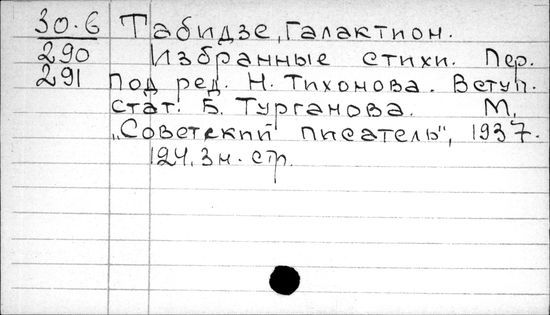 30.6 Табидзе, Галактион.
290 Избранные стихи. Пер.
291 под ред. Н. Тихонова. Вступ.
стат. Б. Турганова. М.
„Советский писатель", 1937.
124, 3 н. стр.